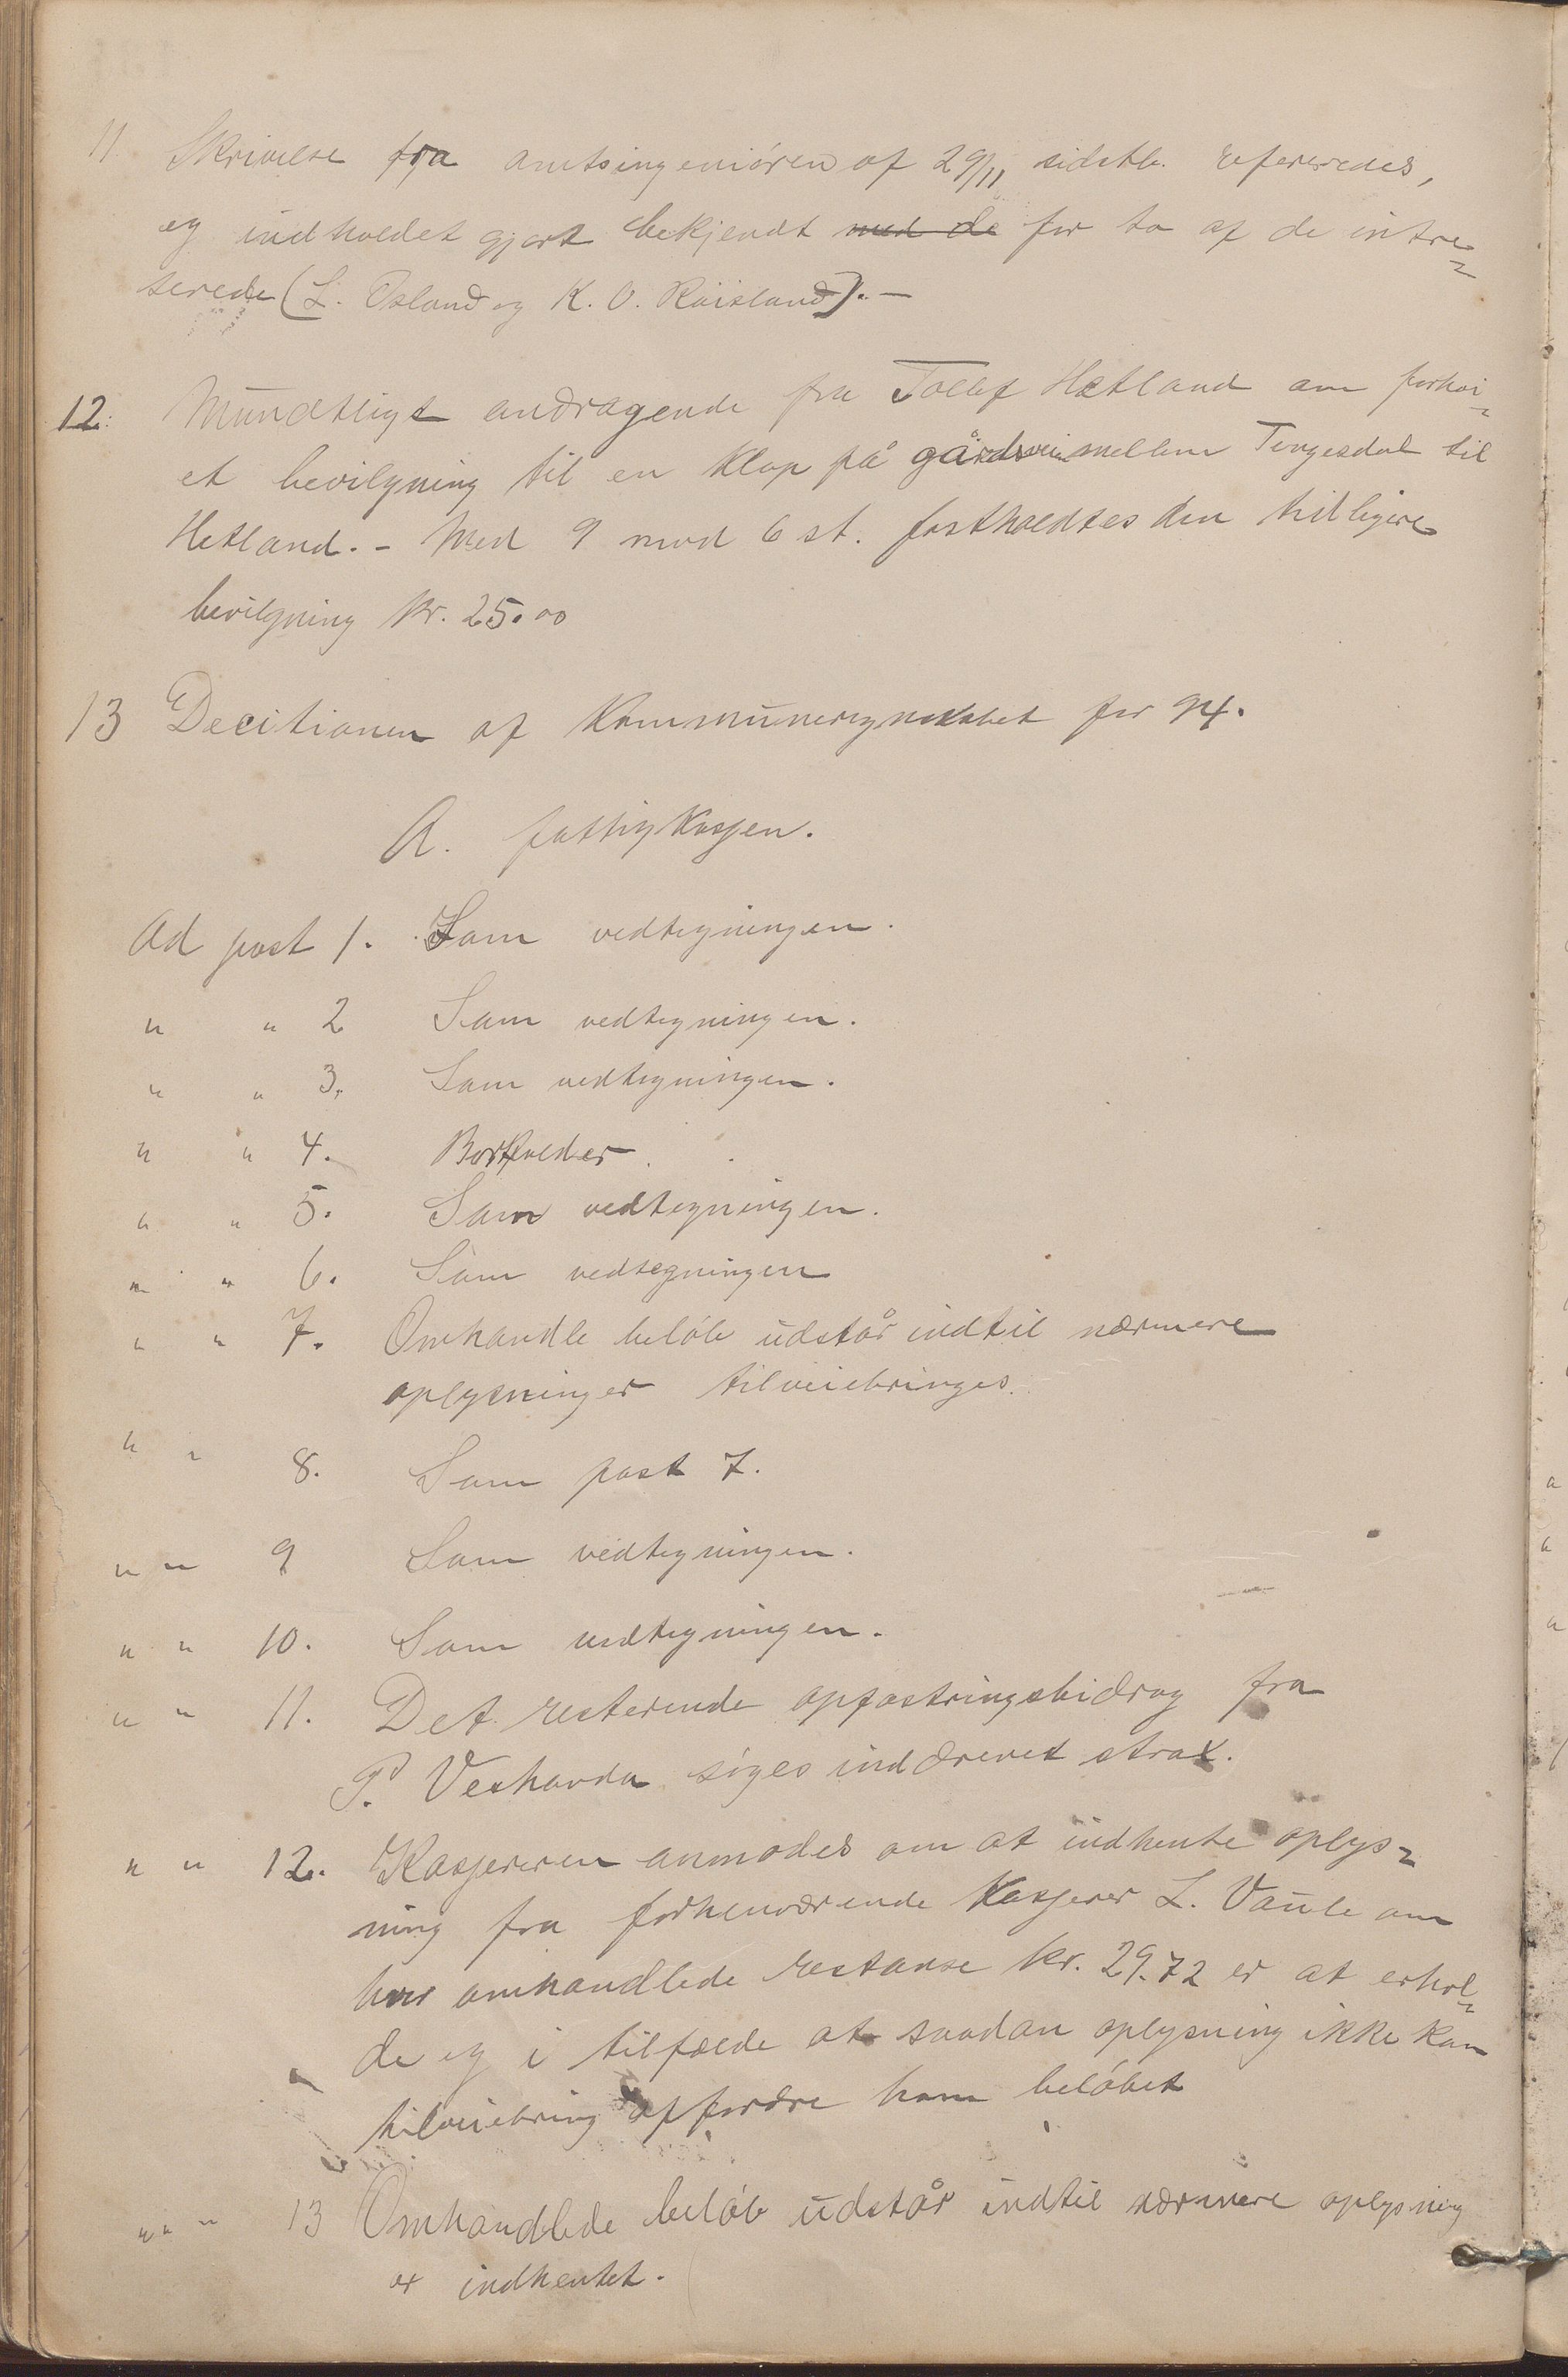 11 Skrivelse fra amtsingeniøren af 29/11 sidstl. refereredes,
og indholdet gjort bekjendt med de for to af de intre=
serede (L. Osland og K. O. Røisland). —
12. Mundtligt andragende fra Tollef Hetland om forhøi=
et bevilgning til en klop på gårdsvei mellem Tengesdal til
Hetland. - Med 9 mod 6 st. fastholdtes den tidligere
bevilgning kr. 25.00
13 Decitionen af Kommuneregnskabet for 94.
A. fattigkassen.
Ad post 1. Som vedtegningen.
" " 2 Som vedtegningen.
" " 3. Som vedtegningen.
" " 4. Bortfalder.
" " 5. Som vedtegningen.
" " 6. Som vedtegningen
" " 7. Omhandle beløb udstår indtil nærmere
oplysninger tilveiebringes.
" " 8. Som post 7.
" " 9 Som vedtegningen.
" " 10. Som vedtegningen.
" " 11. Det resterende opfostringsbidrag fra
P. søges inddrevet strax.
" " 12. Kassereren anmodes om at indhente oplys=
ning fra forhenværende kasserer L. om
hvor omhandlede restanse kr. 29.72 er at erhol=
de og i tilfælde at saadan oplysning ikke kan
tilveiebring affordre ham beløbet
" " 13 Omhandlede beløb udstår indtil nærmere oplysning
er indhentet.